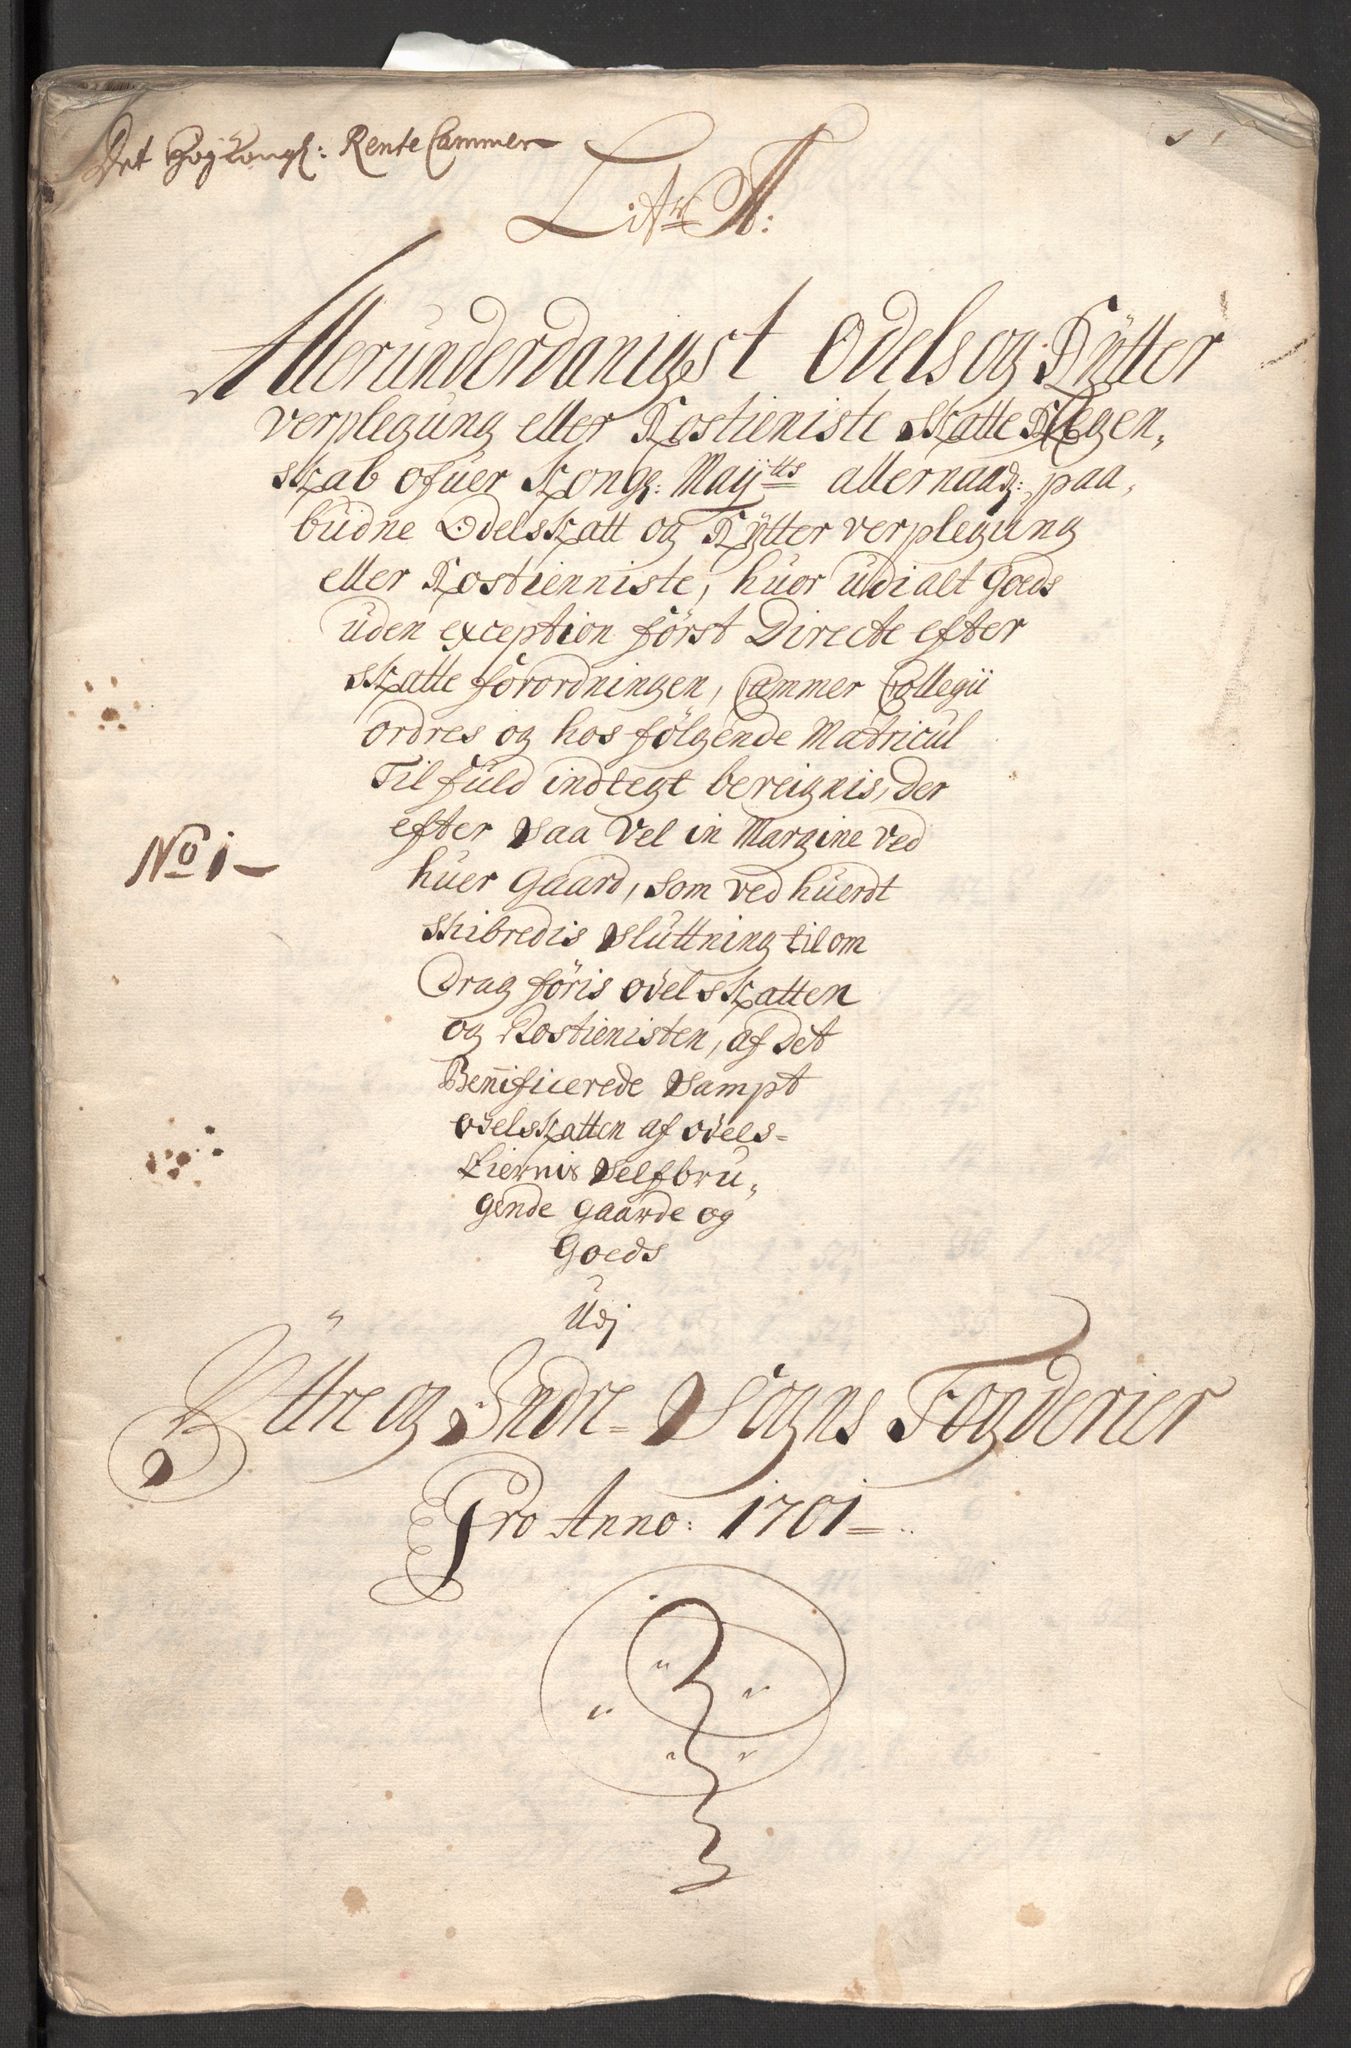 Det Høÿkongl: Rente Cammer
Litr A:
Allerunderdanigst Odels og Rÿtter
verplegung eller Rostieniste Skatte Regen„
skab ofuer Kongl: Maÿtts allernaad: paa„
budne Odelskatt og Rÿtter verplegung
eller Rostienniste, huor udi alt Goeds
uden exception först Directe efter
skatte forordningen, Cammer Collegii
ordres og hos følgende Matricul
Til fuld indtegt bereignis, der
efter saa vel in Margine ved
No 1
huer Gaard, som ved huerdt
skibredis sluttning til om
drag føris odelskatten
og Rostienisten, af det
Benificerede sampt
odelskatten af odels=
Eiernis selfbru„
gende gaarde og
Goeds
Udj
Ÿttre og Indre= Sogns Fogderier
Pro Anno: 1701=